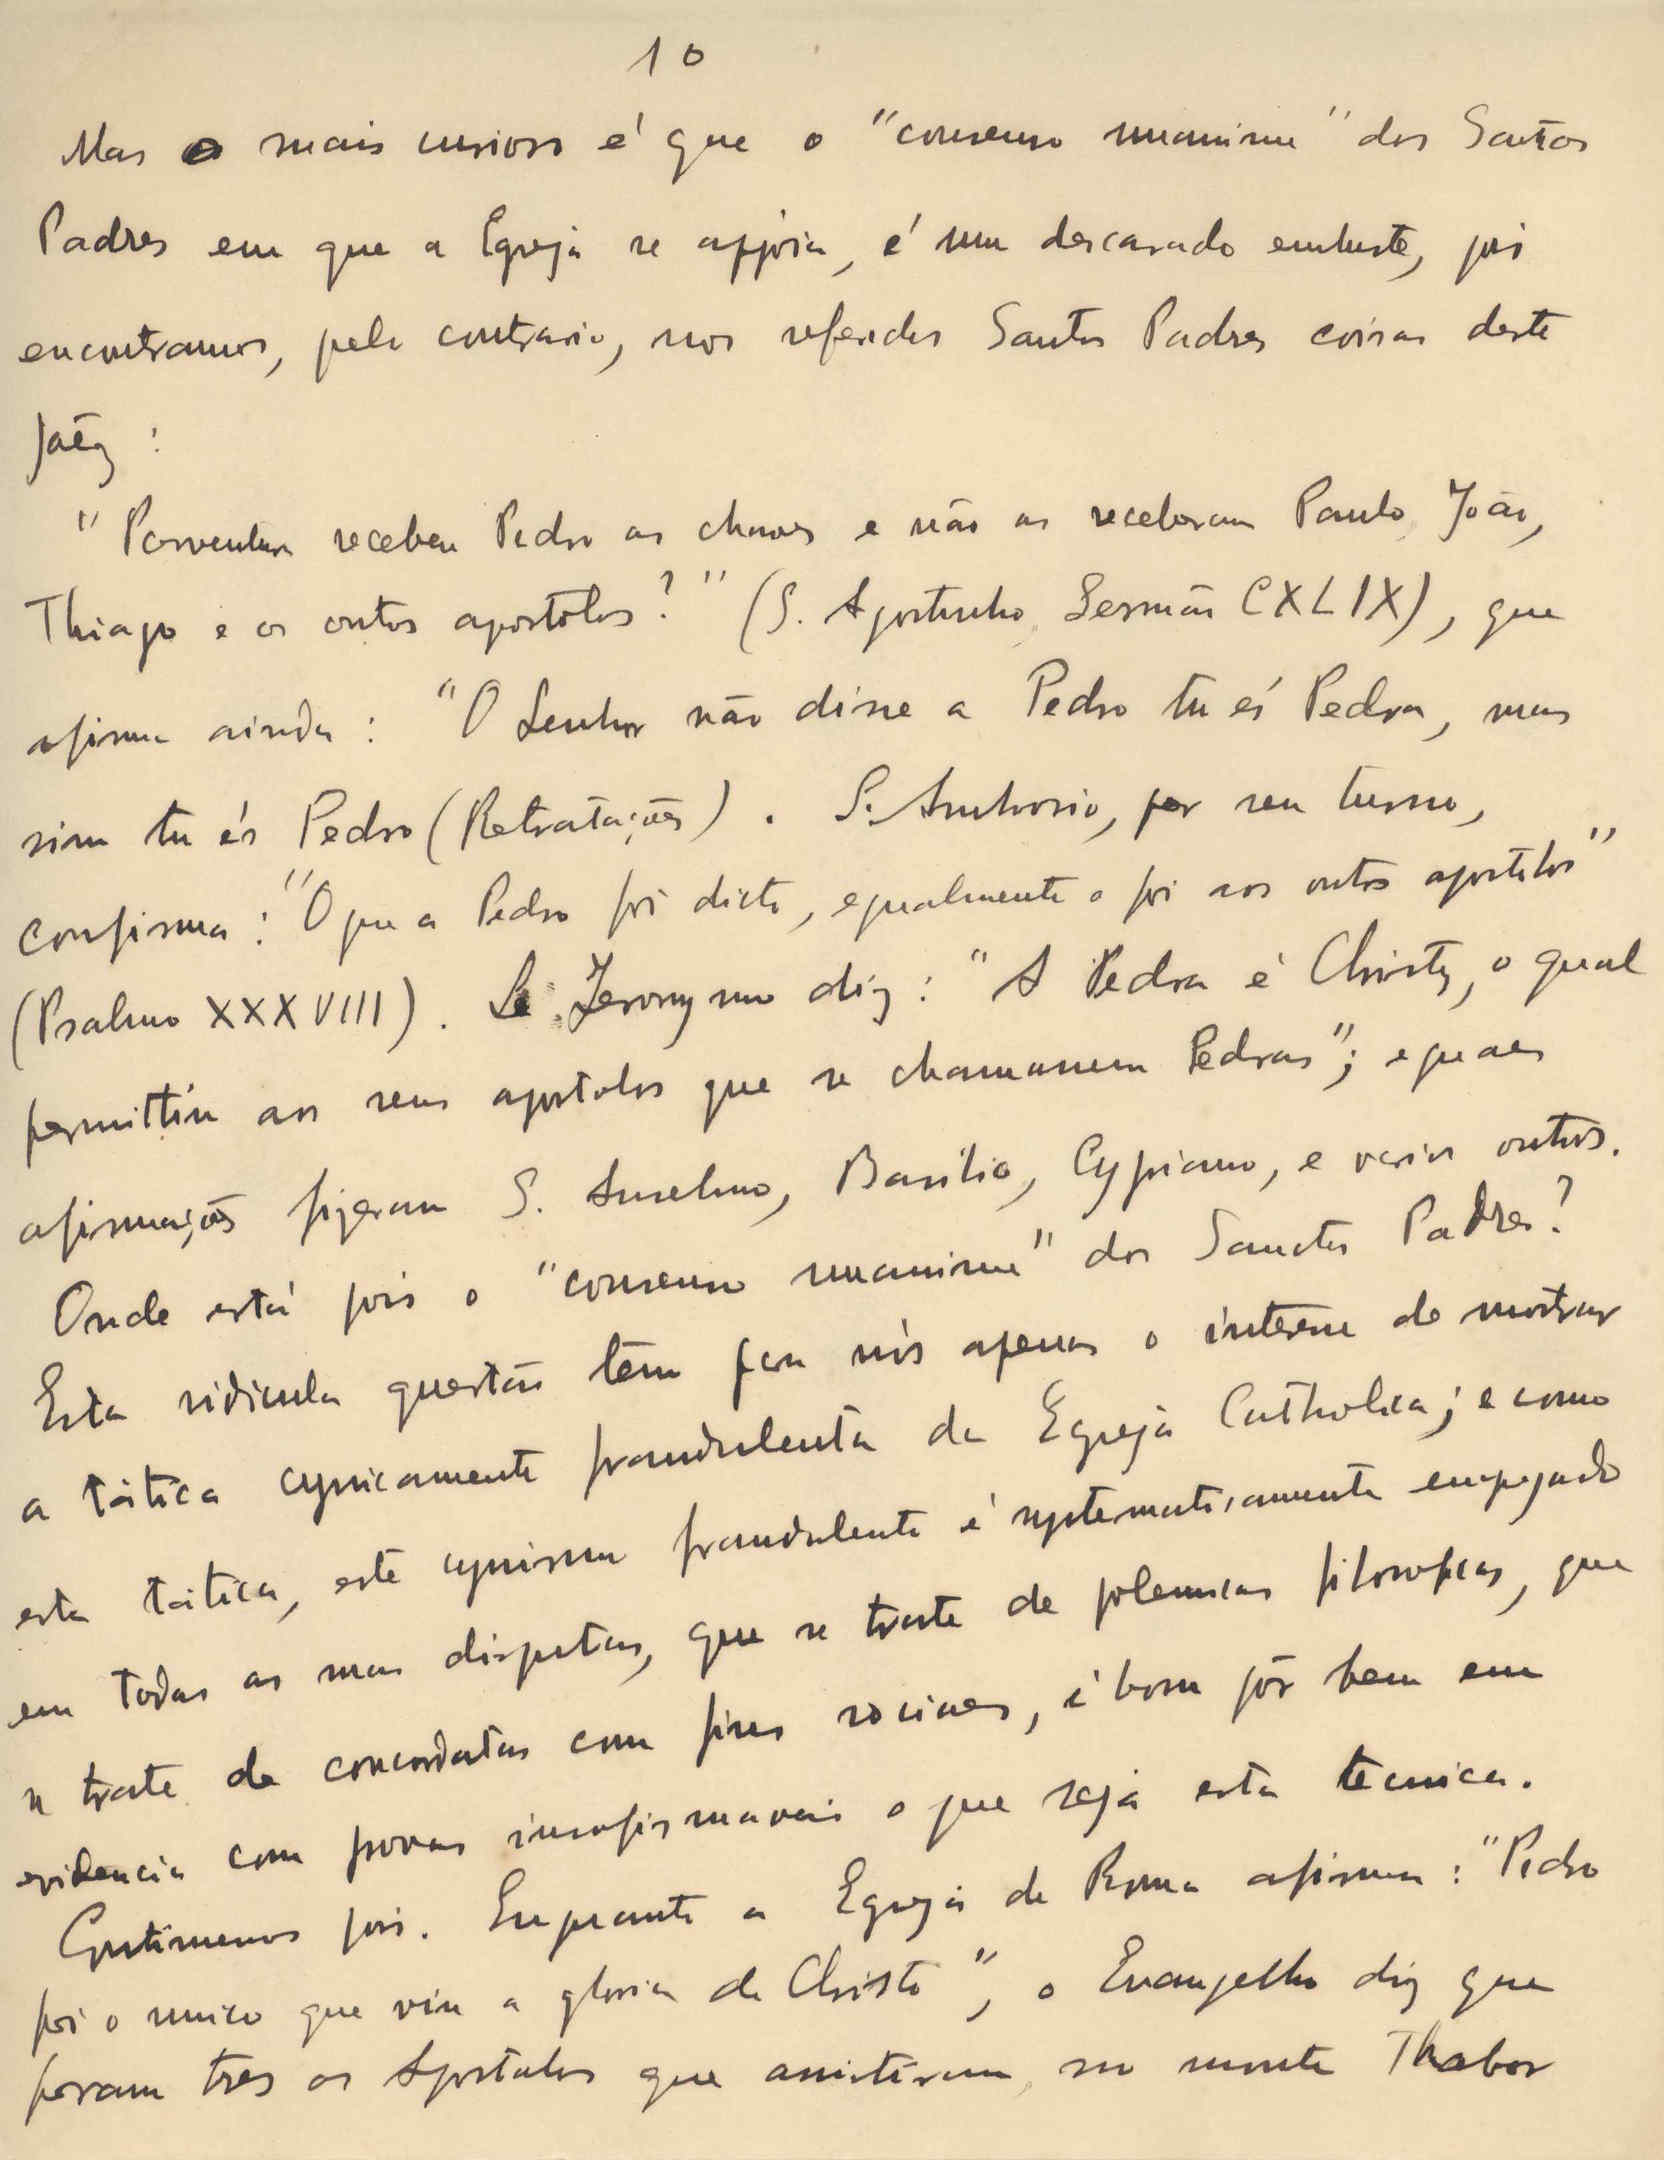 10
Mas o mais curioso é que o "consenso unanime" dos Santos
Padres em que a Egreja se appoia, é um descarado embuste, pois
encontramos, pelo contrario, nos referidos Santos Padres coisas deste
jaêz :
"Porventura recebeu Pedro as chaves e não as receberam Paulo, João,
Thiago e os outros apostolos?" (S. Agostinho, Sermão CXLIX), que
afirma ainda : "O Senhor não disse a Pedro tu és Pedra, mas
sim tu és Pedro (Retratações) . S. Ambrosio, por seu turno,
confirma : "O que a Pedro foi dicto, egualmente o foi aos outros apostolos"
(Psalmo XXXVIII) . S. Jeronymo diz : "A Pedra é Christo, o qual
permittiu aos seus apostolos que se chamassem Pedras"; eguaes
afirmações fizeram S. Anselmo, Basilio, Cypriano, e varios outros.
Onde está pois o "consenso unanime" dos Sanctos Padres?
Esta ridicula questão têm para nós apenas o interesse de mostrar
a tática cynicamente fraudulenta da Egreja Catholica; e como
esta tática, este cynismo fraudulento é systematicamente empregado
em todas as suas disputas, que se trate de polemicas filosoficas, que
se trate de concordatas com fins sociaes, é bom pôr bem em
evidencia com provas inconfirmaveis o que seja esta tecnica.
Continuemos pois. Enquanto a Egreja de Roma afirma : "Pedro
foi o unico que viu a gloria de Christo", o Evangelho diz que
foram tres os Apostolos que assistiram, no monte Thabor